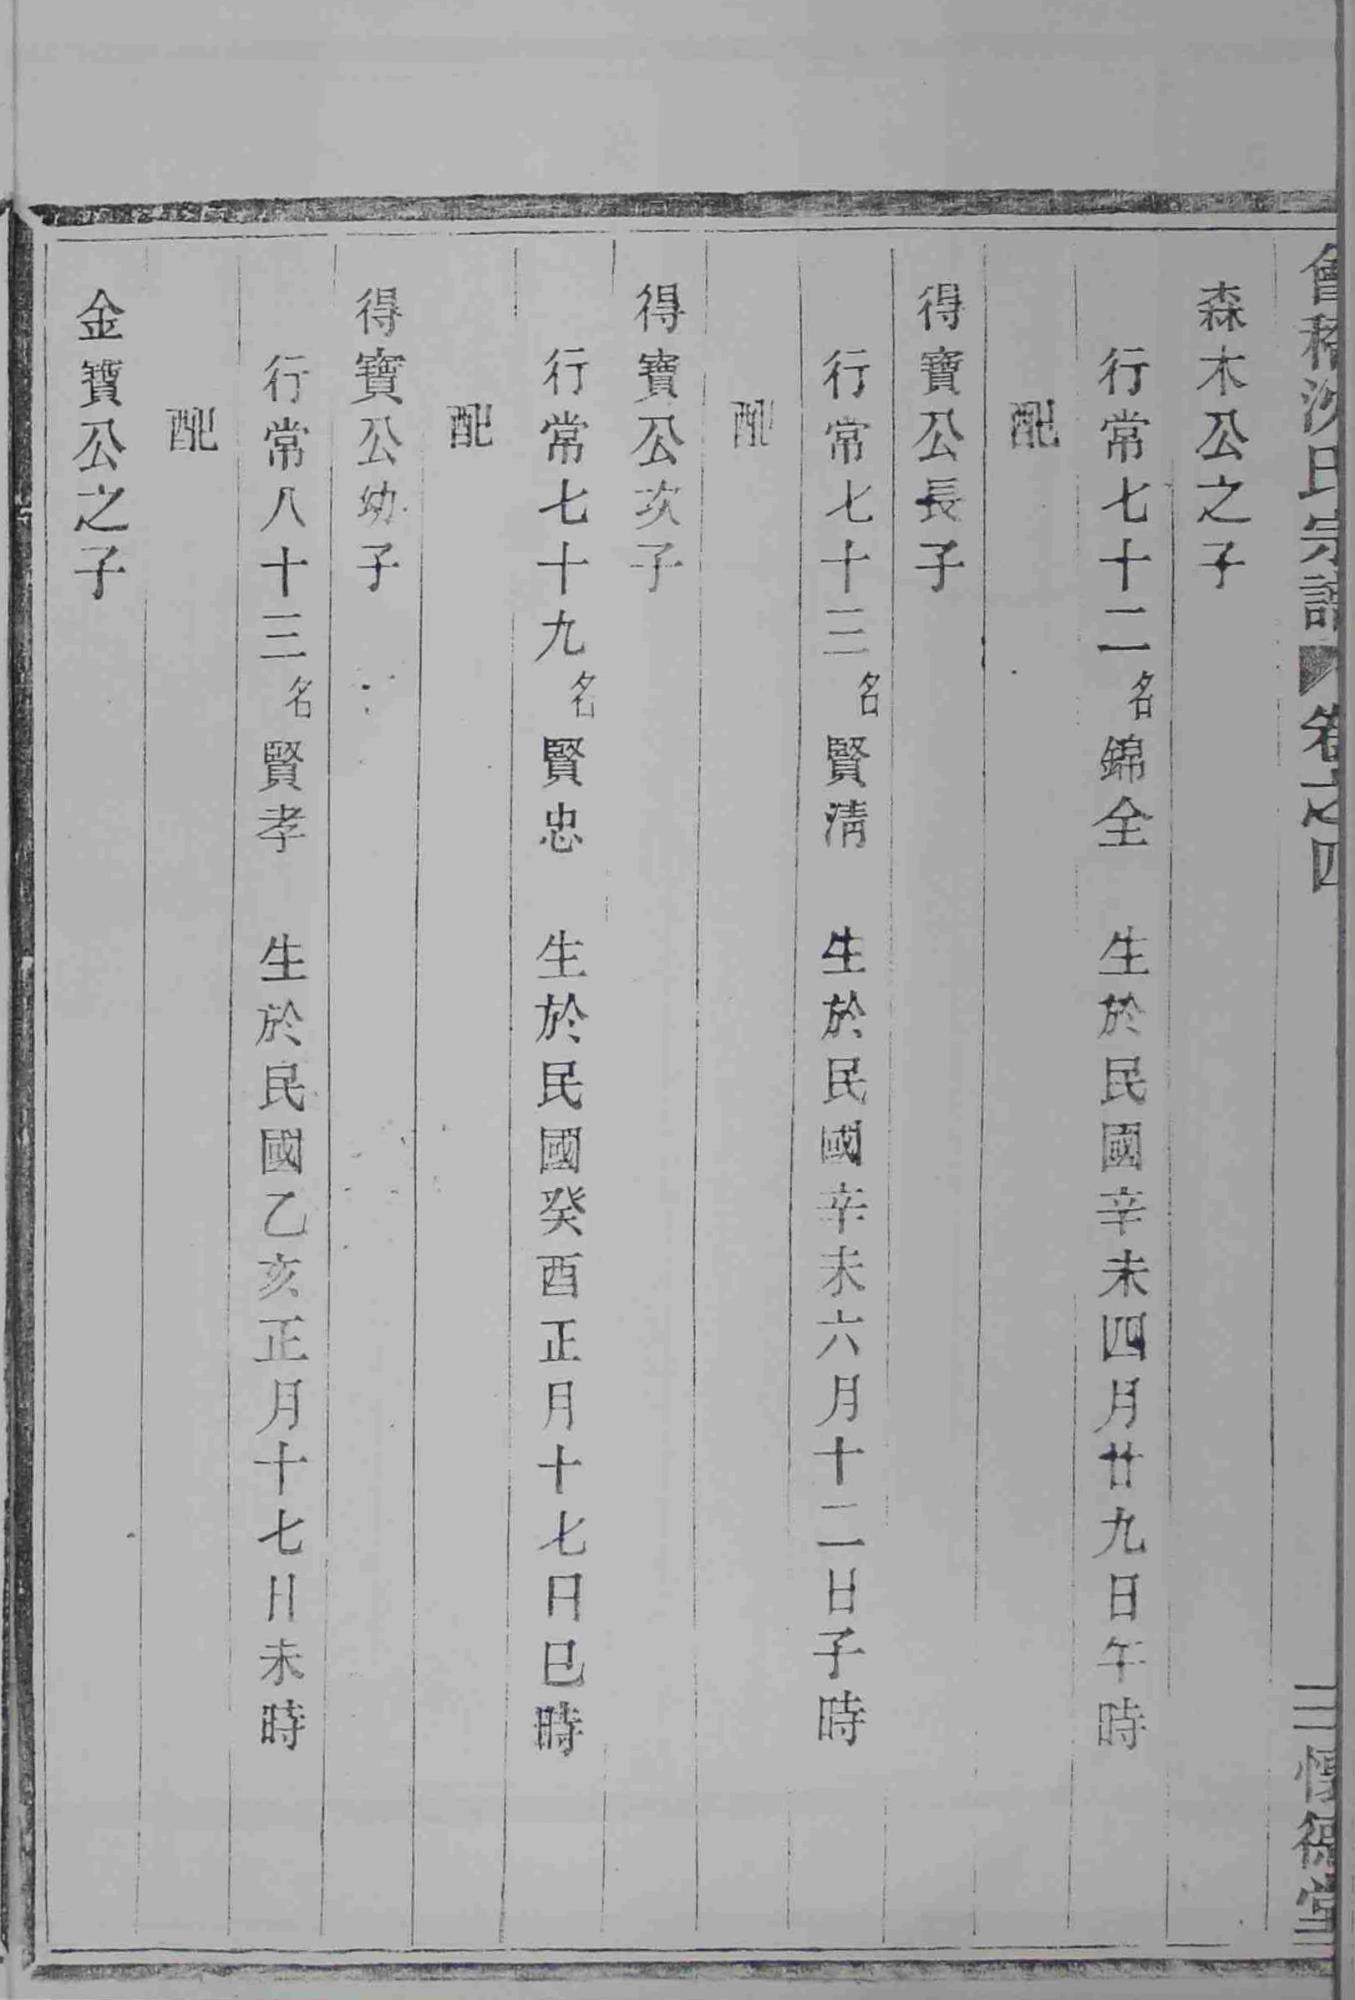 會稽沈氏宗譜 卷之四 三 懷德堂
森木公之子
行常七十二 名 錦全 生於民國辛未四月廿九日午時
配
得寶公長子
行常七十三 名 賢淸 生於民國辛未六月十二日子時
配
得寶公次子
行常七十九 名 賢忠 生於民國癸酉正月十七日巳時
配
得寶公幼子
行常八十三 名 賢孝 生於民國乙亥正月十七日未時
配
金寶公之子